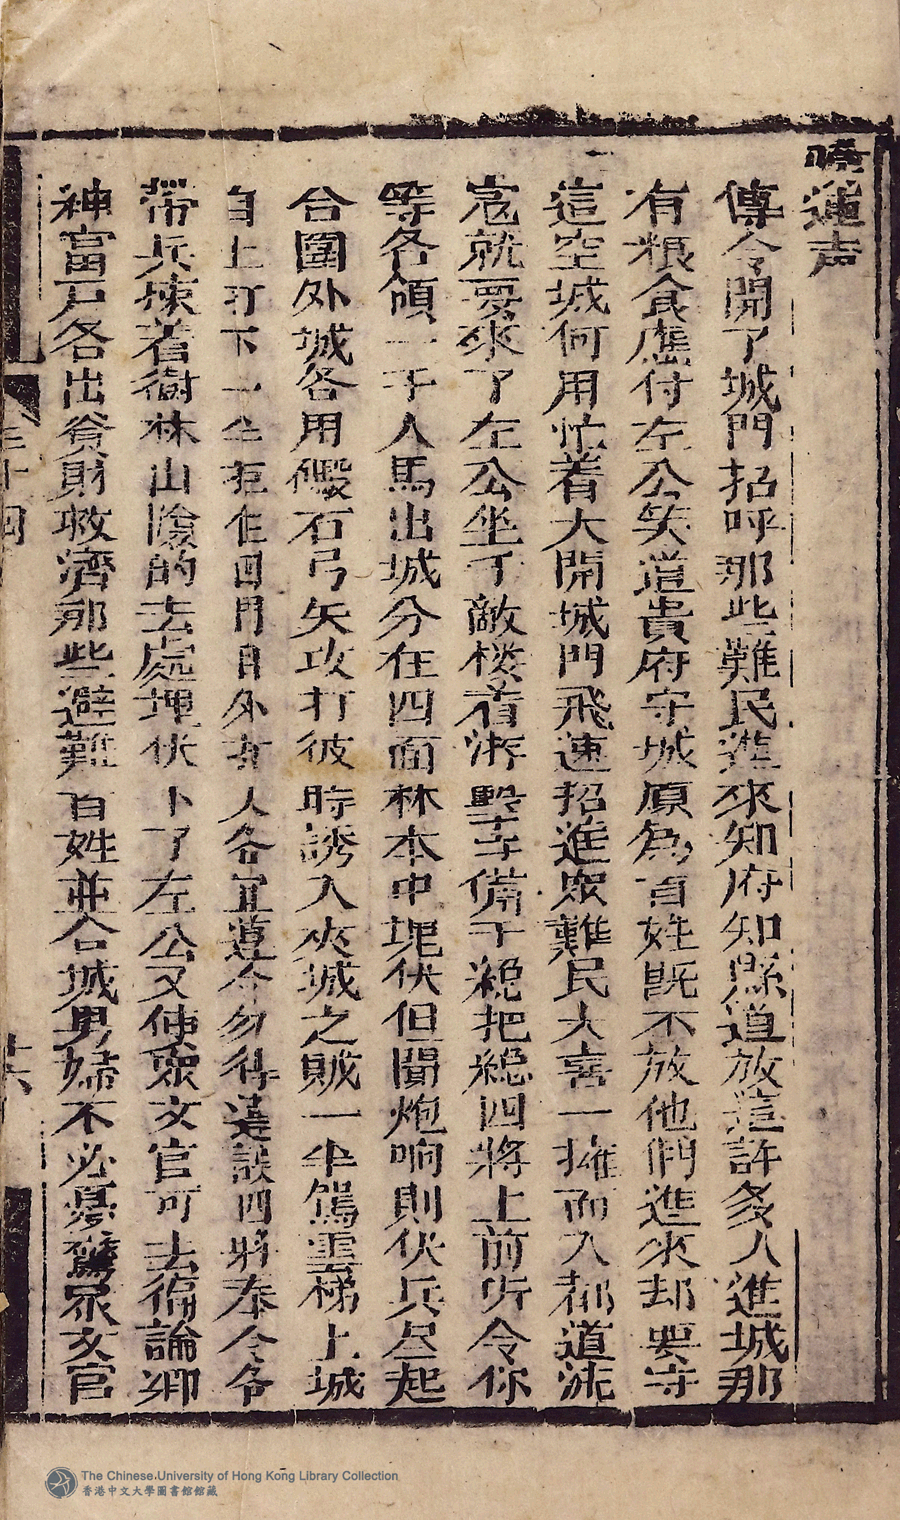 嘵蓮声
傳令開了城門招呼那些難民進來知府知縣道放這許多人進城那
有粮食應付左公笑道貴府守城原為百姓既不放他們進來却要守
這空城何用忙着大開城門飛速招進眾難民大喜一擁而入都道流
寇就要來了左公坐于敵楼着游擊守備千総把総四將上前听令你
等各領一千人馬出城分在四面林本中埋伏但聞炮响則伏兵尽起
合圍外城各用礮石弓矢攻打彼時誘入夾城之賊一半駕雲梯上城
自上打下一半拒住四門自外有人各宜遵令勿得違誤四將奉令各
帶兵揀着樹林山陰的去處埋伏下了左公又使眾文官可去徧諭鄉
神富戸各出資財救濟那些避難百姓並合城男婦不必憂驚眾文官
三十回
十六
The Chinese University of Hong Kong Library Collection
香港中文大學圖書館館藏